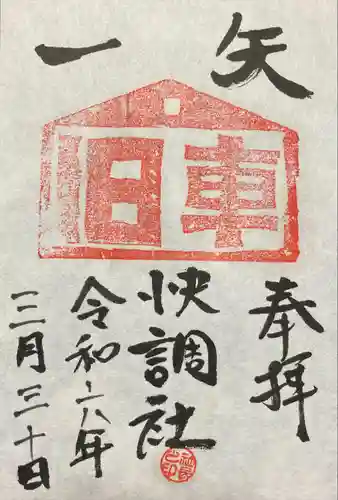 一矢
旧車
奉拝
快調社
令和六年
三月三十日